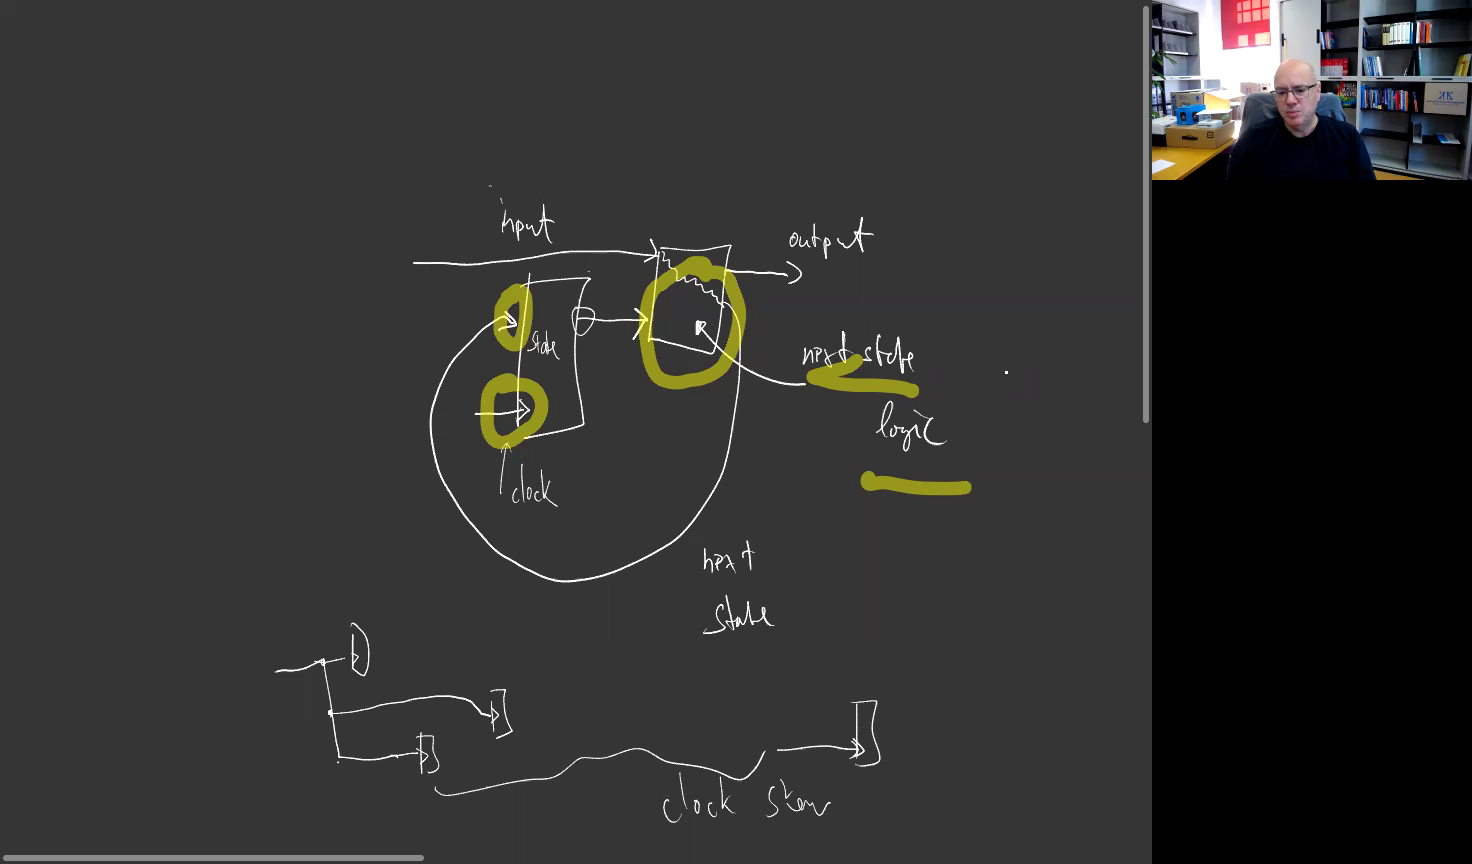 input
output
state
next state
logic
clock
next
state
clock skew